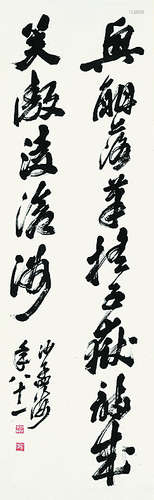 興酣落筆搖五嶽詩成
笑傲凌滄洲
沙孟海
年八十一